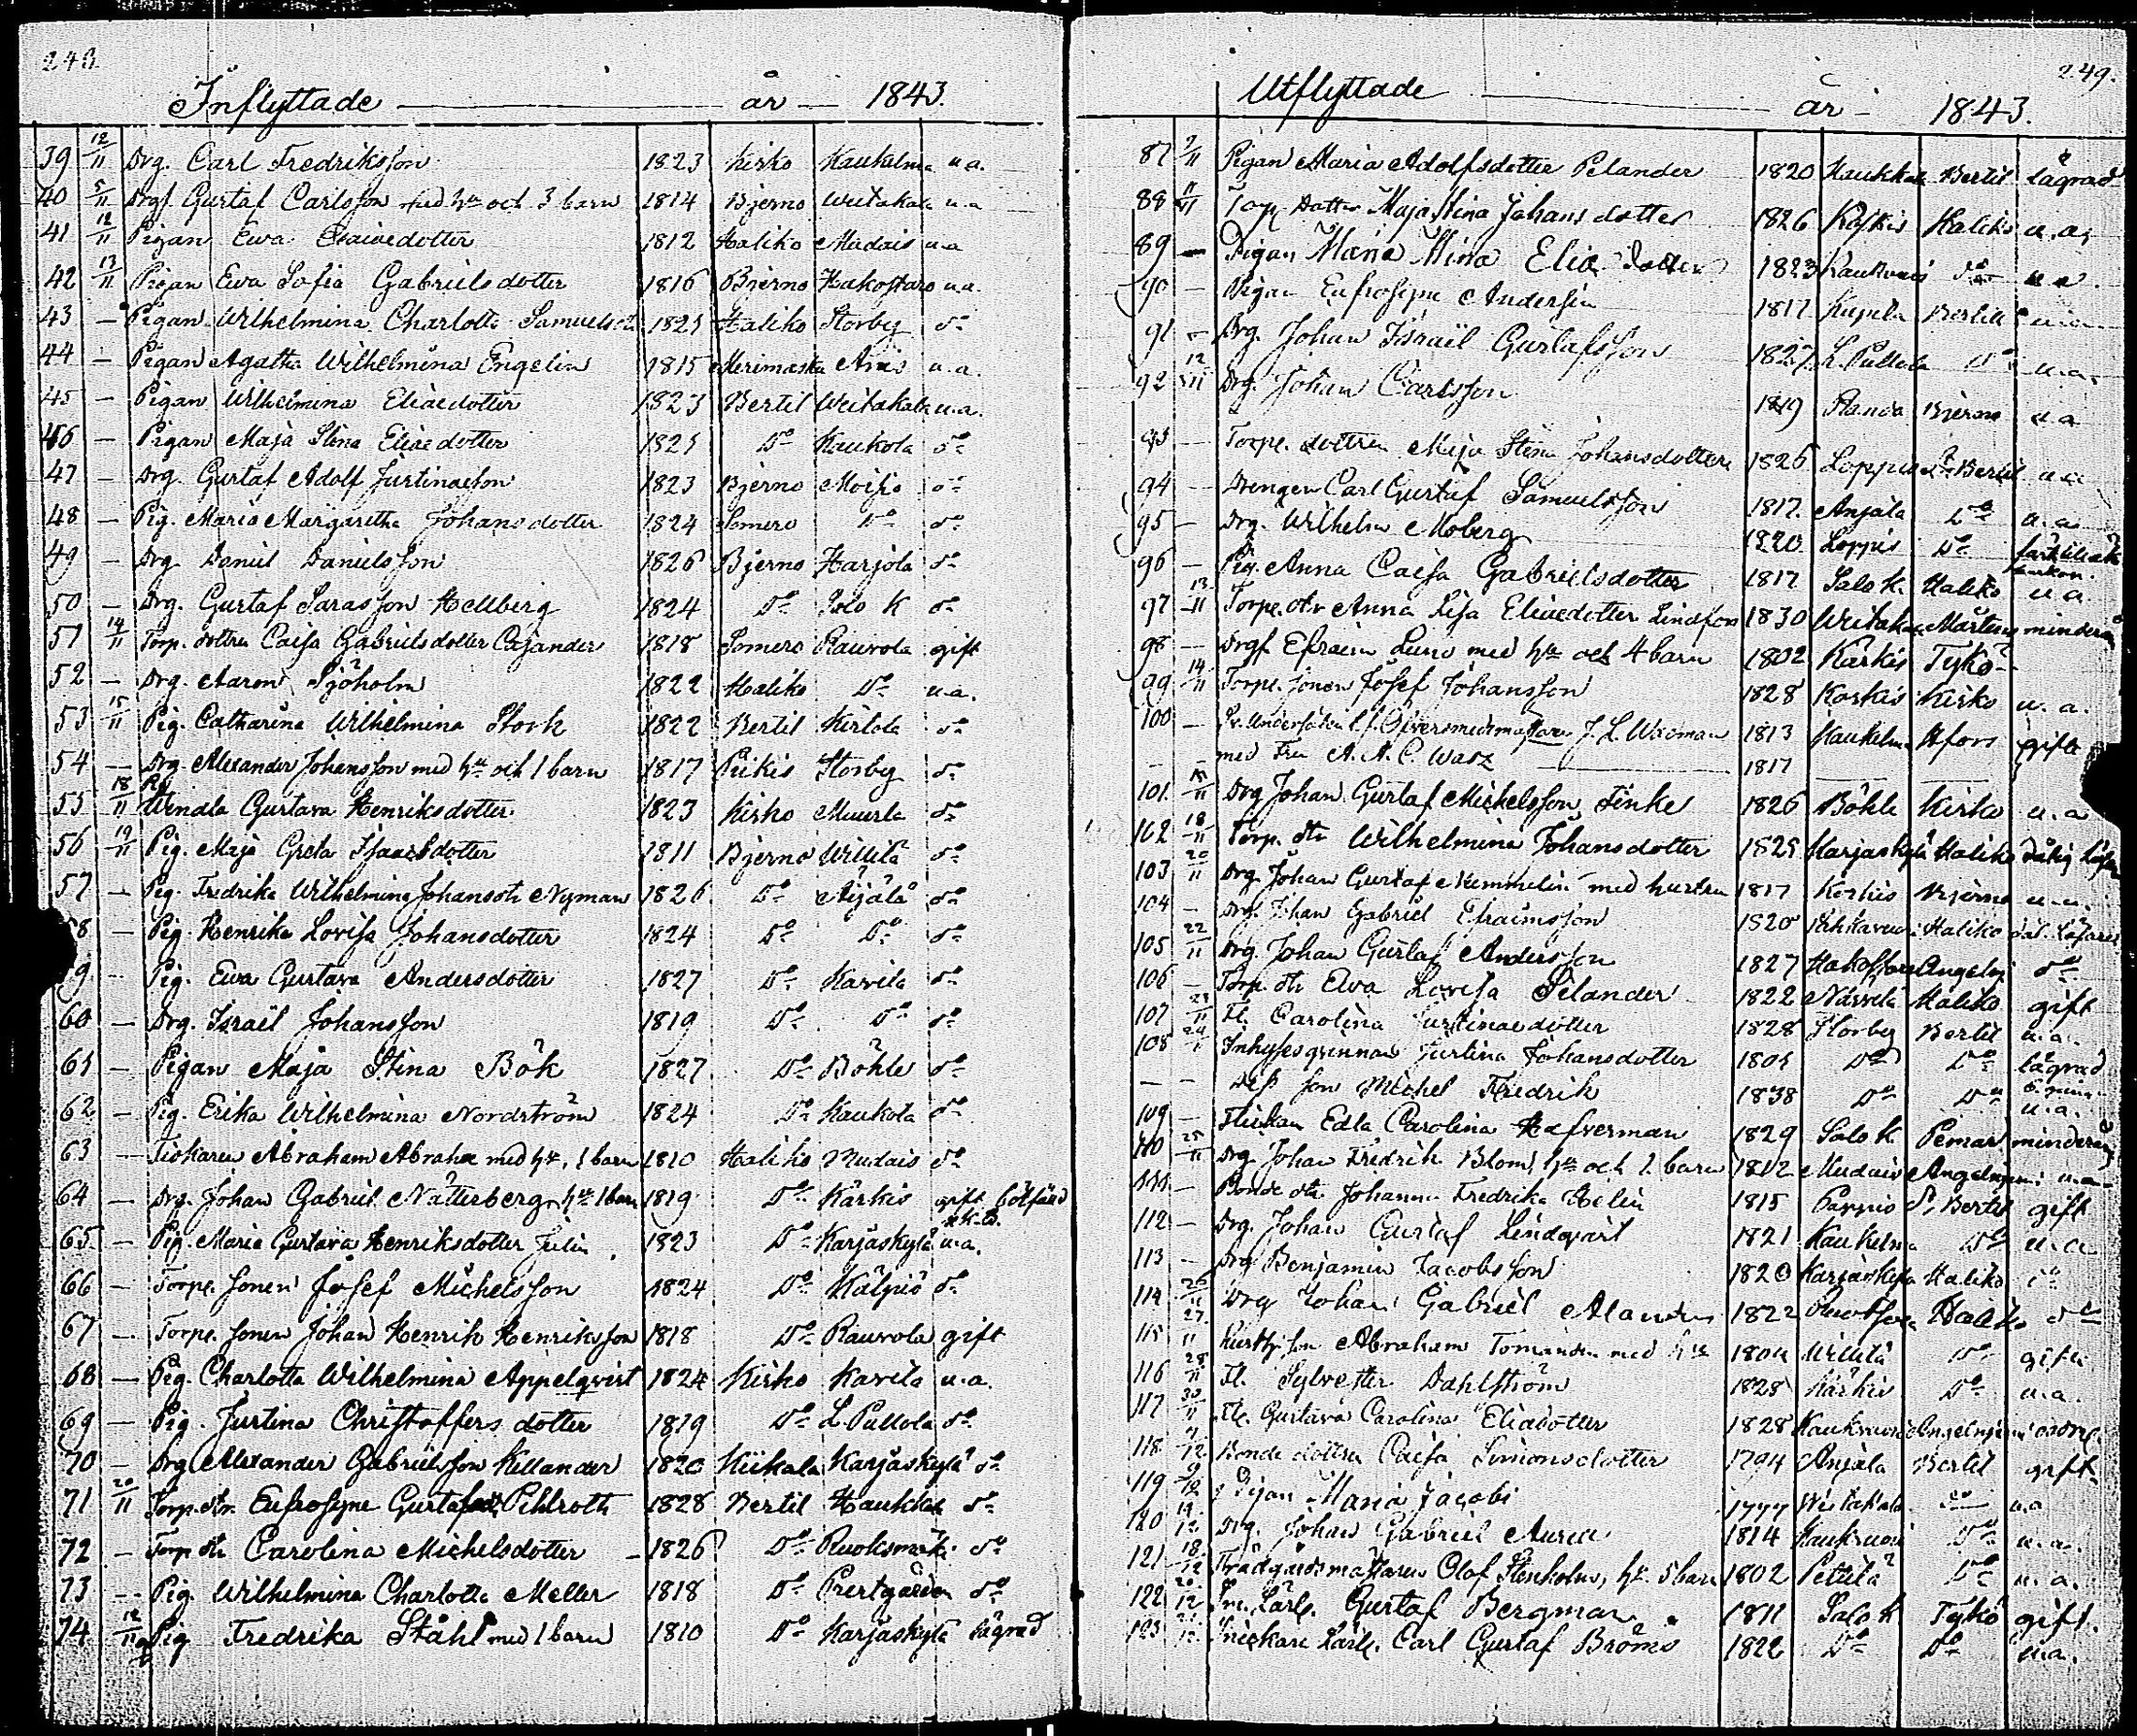 248.
Inflyttade år 1843.
39 12/11 Drg. Carl Fredriksson 1823 Kisko Kaukelma u.a.
40 5/11 Drgf. Gustaf Carlsson med hu och 3 barn 1814 Bjerno Weitakala u.a
41 12/11 Pigan Ewa dotter 1812 Haliko Madais u.a
42 13/11 Pigan Ewa Sofia Gabrielsdotter 1816 Bjerno u.a.
43 — Pigan Wilhelmina Charlotta Samuels 1825 Haliko Storby do
44 — Pigan Agatha Wilhelmina Engelin 1815 Merimasku u.a.
45 — Pigan Wilhelmina Eliaedotter 1823 Bertil Weitakala u.a.
46 — Pigan Maja Stina Eliaedotter 1825 Do Kaukola do
47 — Drg. Gustaf Adolf Justinaeson 1823 Bjerno Moisio do
48 — Pig. Maria Margaretha Johansdotter 1824 Somero Do do
49 — Drg Daniel Danielsson 1826 Bjerno Harjola do
50 — Drg. Gustaf Sarasson Hellberg 1824 Do Salo K do
51 14/11 Torp. dottren Caisa Gabrielsdotter Cajander 1818 Somero Rauvola gift
52 — Drg. Aaron Sjöholm 1822 Haliko Do u.a.
53 15/11 Pig. Catharina Wilhelmina Stork 1822 Bertil Kirlola do
54 — Drg. Alexander Johansson med hu och 1 barn 1817 Pikis Storby do
55 18/11 Pig Wendla Gustava Henriksdotter 1823 Kisko Muurla do
56 19/11 Pig. Maja Greta Isaacsdotter 1811 Bjerno Willilä do
57 — Pig. Fredrika Wilhelmina Johansdtr Nyman 1826 Do Äijälä do
58 — Pig. Henrika Lovisa Johansdotter 1824 Do Do do
59 — Pig. Ewa Gustava Andersdotter 1827 Do Kavila do
60 — Drg. Israil Johansson 1819 Do Do do
61 — Pigan Maja Stina Bök 1827 Do Böhle do
62 — Pig. Erika Wilhelmina Nordström 1824 Do Kaukola do
63 — Abraham Abraha med hu, 1 barn 1810 Haliko Mudais do
64 — Drg. Johan Gabriel Nätterberg, hu 1 barn 1819 Do Kärkis gift
65 — Pig. Maria Gustava Henriksdotter Julin 1823 Do Karjaskylä u.a.
66 — Torp. sonen Josef Michelsson 1824 Do Kälpiö do
67 — Torp. sonen Johan Henrik Henriksson 1818 Do Rauvola gift
68 — Pig. Charlotta Wilhelmina Appelqvist 1824 Kisko Kavila u.a.
69 — Pig. Justina Christoffers dotter 1819 Do L Pullola do
70 — Drg Alexander Gabrielsson Killander 1820 Kiikala Karjaskylä do
71 20/11 Torp. dtr. Eufrosyne Gustafsdt Pihlroth 1828 Bertil Haukkala do
72 — Torp dtr Carolina Michelsdotter 1826 Do Ruoksmäki do
73 — Pig. Wilhelmina Charlotta Meller 1818 Do Prestgården do
74 12/11 Pig Fredrika Ståhl med 1 barn 1810 Do Karjaskylä lägrad
249.
Utflyttade år 1843.
87 9/11 Pigan Maria Adolfsdotter Pelander 1820 Haukkala Bertil lägrad
88 11/11 Torp. Dotter Maja Stina Johans dotter 1826 Haliko u.a.
89 — Pigan Maria Stina Eliae dotter 1823 do u.a.
90 — Pigan Eufrosyne Andersin 1817 Bertil
91 — Drg. Johan Israil Gustafsson 1827 L. Pullola Do u.a.
92 12/11 Drg. Johan Carlsson 1819 Bjerno u.a
93 — Torp. dottren Maja Stina Johansdotter 1826 Loppis St Bertil u.a.
94 — Drengen Carl Gustaf Samuelsson 1817. Anjala Do u.a.
95 — Drg. Wilhelm Moberg 1820 Loppis Do
96 — Pig. Anna Caisa Gabrielsdotter 1817 Salo K. Haliko u.a.
97 13/11 Torp. dtr Anna Lisa Eliaedotter Lindfors 1830 Weitakala Mårtens minderårig
98 — Drgf Efraim Lund med hu och 4 barn 1802 Kärkis Tykö —
99 14/11 Torp. sonen Josef Johansson 1828 Kärkis Kisko u. a.
100 — J. L. Wreman 1813 Kaukelma Afors gift
— — med Fru A. A. C. Wasz 1817
101. 15/11 Drg Johan Gustaf Michelsson Finke 1826 Böhle Kisko u.a
102 18/11 Torp. dtr Wilhelmina Johansdotter 1825 Karjaskylä Haliko dålig läsare
103 20/11 Drg. Johan Gustaf med hustru 1817 Bjerno u.a.
104 — Drg. Johan Gabriel Efraimsson 1820 Haliko dål. läsare
105 22/11 Drg. Johan Gustaf Andersson 1827 Angeln do
106 — Torp. dtr Ewa Lovisa Selander 1822 Haliko gift
107 23/11 Fl. Carolina Justinaedotter 1828 Storby Bertil u.a.
108 24/11 Inhysesqvinnan Justina Johansdotter 1805 Do Do lägrad
— — Dess son Michel Fredrik 1838 Do Do u.a.
109 — Flickan Edla Carolina Hafverman 1829 Salo K Pemar minderårig
110 25/11 Drg. Johan Fredrik Blom, hu och 2 barn 1812 Mudais Angelniemi u.a.
111 — Bonde dtr. Johanna Fredrika Helin 1815 Pappis St. Bertil gift
112 — Drg. Johan Gustaf Lindqvist 1821 Kaukelma Do u.a
113 — Drg Benjamin Jacobsson 1820 Karjaskylä Haliko do
114 26/11 Drg Johan Gabriel Alander 1822 Haliko do
115 27/11 Abraham Tomander med hu 1804 Willilä Do gift
116 28/11 Fl. Sylvester Dahlström 1828 Kärkis Do u.a.
117 30/11 Fl. Gustava Carolina Eliadotter 1828 Angelniemi
118 4/12 Bonde dottren Caisa Simonsdotter 1794 Anjala Bertil gift
119 9/12 Pigan Maria Jacobi 1777 Witakala Do u.a
120 14/12 Drg. Johan Gabriel 1814 Do u.a.
121 18/12 Trädgårdsmästaren Olof Stenholm, hu. 5 barn 1802 Petilä Do u.a.
122 20/12 Sn. Lärl. Gustaf Bergman 1811 Salo K Tykö gift.
123 21/12 Snickare Lärl. Carl Gustaf Broms 1822 Do Do u.a.